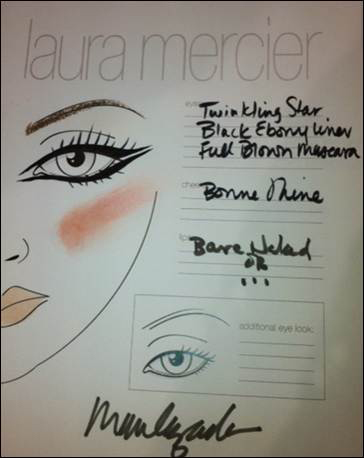 laura mercier
eyes
Twinkling Star
Black Ebony liner
Full Blown Mascara
Bonne Mine
lips
Bare Naked
OR
...
additional eye look: